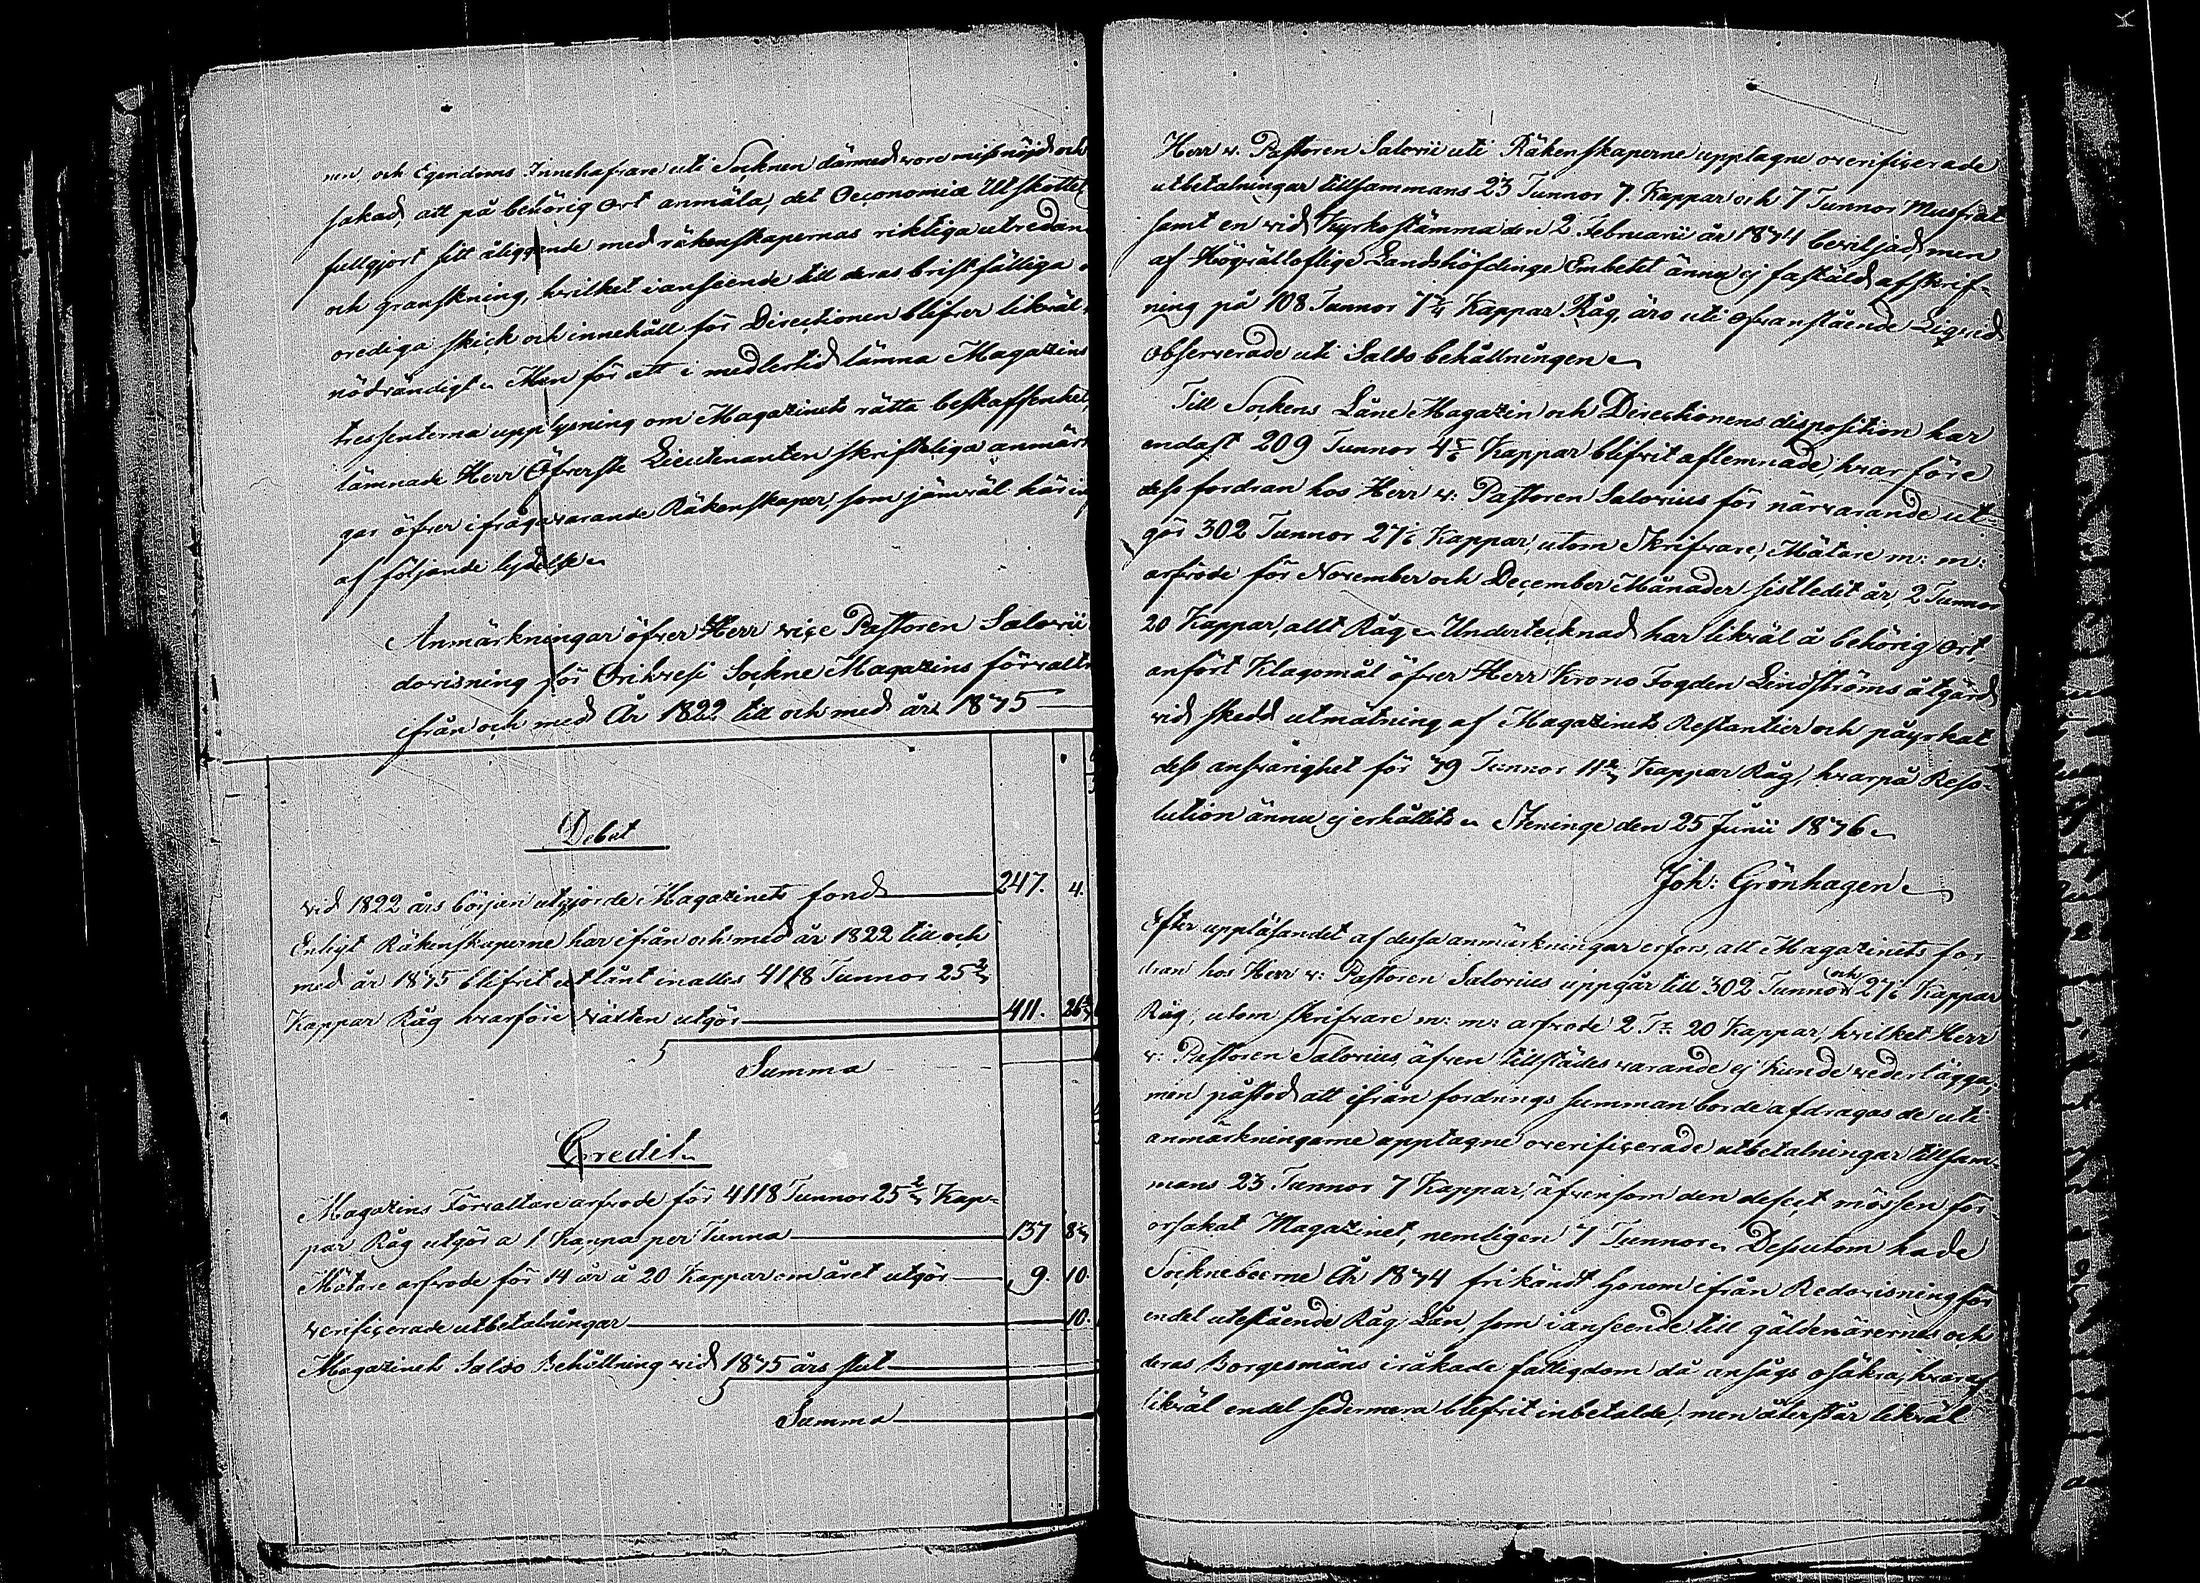 nen, och Egendoms Innehafvare uti Socknen därmed vore missnöjd och
sakad, att på behörig ort anmäla, det Oeconomiæ Utskottet
fullgjort sitt åliggande med räkenskapernas riktiga utredan
och granskning, hvilket i anseende till deras bristfälliga
orediga skick och innehåll för Directionen blifver likväl
nödvändigt. Men för att i medlertid lämna Magazins
tressenterna upplysning om Magazinets rätta beskaffenhet,
lämnade Herr Öfverste Lieutenanten skrifteliga anmärk
gar öfver ifrågavarande Räkenskaper, som jämväl här in
af följande lydelse.
Anmärkningar öfver Herr vice Pastoren Salovii
dovisning för Orihvesi Sockne Magazins förvaltn
ifrån och med År 1822 till och med år 1875
Debet
vid 1822 års början utgjorde Magazinets fond 247. 4.
Enligt Räkenskaperne har ifrån och med år 1822 till och
med år 1875 blifvit utlånt inalles 4118 Tunnor 25 2/7
Kappar Råg hvarföre växten utgör 411. 26
Summa
Credit.
Magazins Förvaltare arfvode för 4118 Tunnor 25 2/7 Kap=
par Råg utgör a 1 Kappa per Tunna 137 8
Mätare arfvode för 14 år à 20 Kappar om året utgör 9. 10.
verificerade utbetalningar 10.
Magazinets Saldo Behållning vid 1875 års slut
Summa
Herr v. Pastoren Salovii uti Räkenskaperne upptagne overificerade
utbetalningar tillsammans 23 Tunnor 7. Kappar och 7 Tunnor Musfrät
samt en vid Kyrkostämma den 2 Februarii år 1874 beviljad, men
af Högvälloflige Landshöfdinge Embetet ännu ej faställd afskrif=
ning på 108 Tunnor 7 1/4 Kappar Råg, äro uti ofvanstående Liqvid
observerade uti Saldo behållningen.
Till Sockens Låne Magazin och Directionens disposition har
endast 209 Tunnor 4 5/6 Kappar blifvit aflemnade, hvarföre
dess fordran hos Herr v: Pastoren Salovius för närvarande ut=
gör 302 Tunnor 27 1/6 Kappar, utom Skrifvare, Mätare m: m:
arfvode för November och December Månader sistledit år, 2 Tunnor
20 Kappar, allt Råg. Undertecknad har likväl å behörig ort,
anfört Klagomål öfver Herr Krono Fogden Lindströms åtgärd
vid skedd utmätning af Magazinets Restantier och påyrkat
dess ansvarighet för 79 Tunnor 11 Kappar Råg, hvarpå Reso=
lution ännu ej erhållits. Steninge den 25 Junii 1876.
Joh: Grönhagen.
Efter uppläsandet af dessa anmärkningar erfors, att Magazinets for=
dran hos Herr v: Pastoren Salovius uppgår till 302 Tunnor och 27 1/6 Kappar
Råg, utom skrifvare m: m: arfvode 2 Tr 20 Kappar, hvilket Herr
v: Pastoren Salovius, äfven tillstädes varande ej kunde vederlägga;
men påstod att ifrån fordrings summan borde afdragas de uti
anmärkningarne upptagne overificerade utbetalningar tillsam=
mans 23 Tunnor 7 Kappar, äfvensom den defect mössen för=
orsakat Magazinet, nemligen 7 Tunnor. Dessutom hade
Socknеboerne År 1874 frikändt honom ifrån Redovisning för
endel utestående Råg Lån, som i anseende till gäldenärernes och
deras Borgesmäns iråkade fattigdom då ansågs osäkra, hvaraf
likväl endel sedermera blifvit inbetalde, men återstår likväl